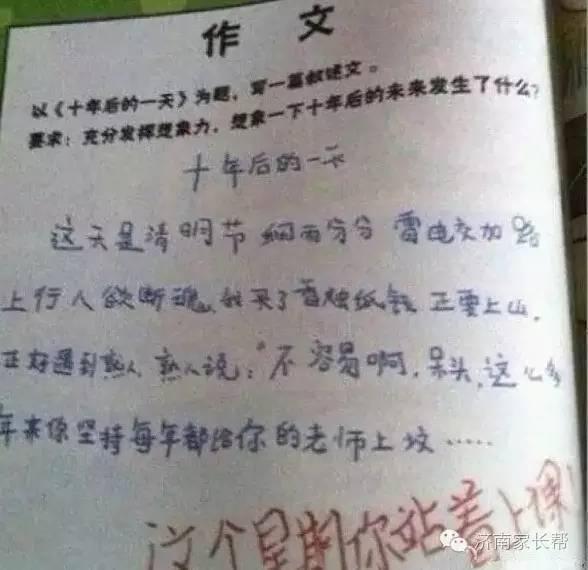 作 文
以《十年后的一天》为题，写一篇叙述文。
要求：充分发挥想象力，想象一下十年后的未来发生了什么？
十年后的一天
这天是清明节 细雨纷纷 雷电交加 路
上行人欲断魂，我买了香烛纸钱 正要上山，
正好遇到熟人，熟人说："不容易啊，呆头，这么多
年来你坚持每年都给你的老师上坟……
这个星期你站着上课！
济南家长帮